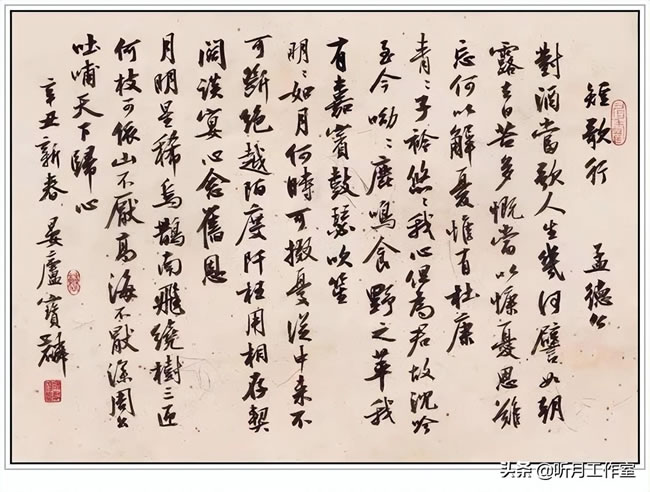 短歌行 孟德公
對酒當歌人生幾何譬如朝
露去日苦多慨當以慷憂思難
忘何以解憂惟有杜康
青〻子衿悠〻我心但為君故沈吟
至今呦〻鹿鳴食野之苹我
有嘉賓鼓瑟吹笙
明〻如月何時可掇憂從中來不
可斷絕越陌度阡枉用相存契
闊談宴心念舊恩
月明星稀烏鵲南飛繞樹三匝
何枝可依山不厭高海不厭深周公
吐哺天下歸心
辛丑新春 晏廬寶麟
头条 @听月工作室